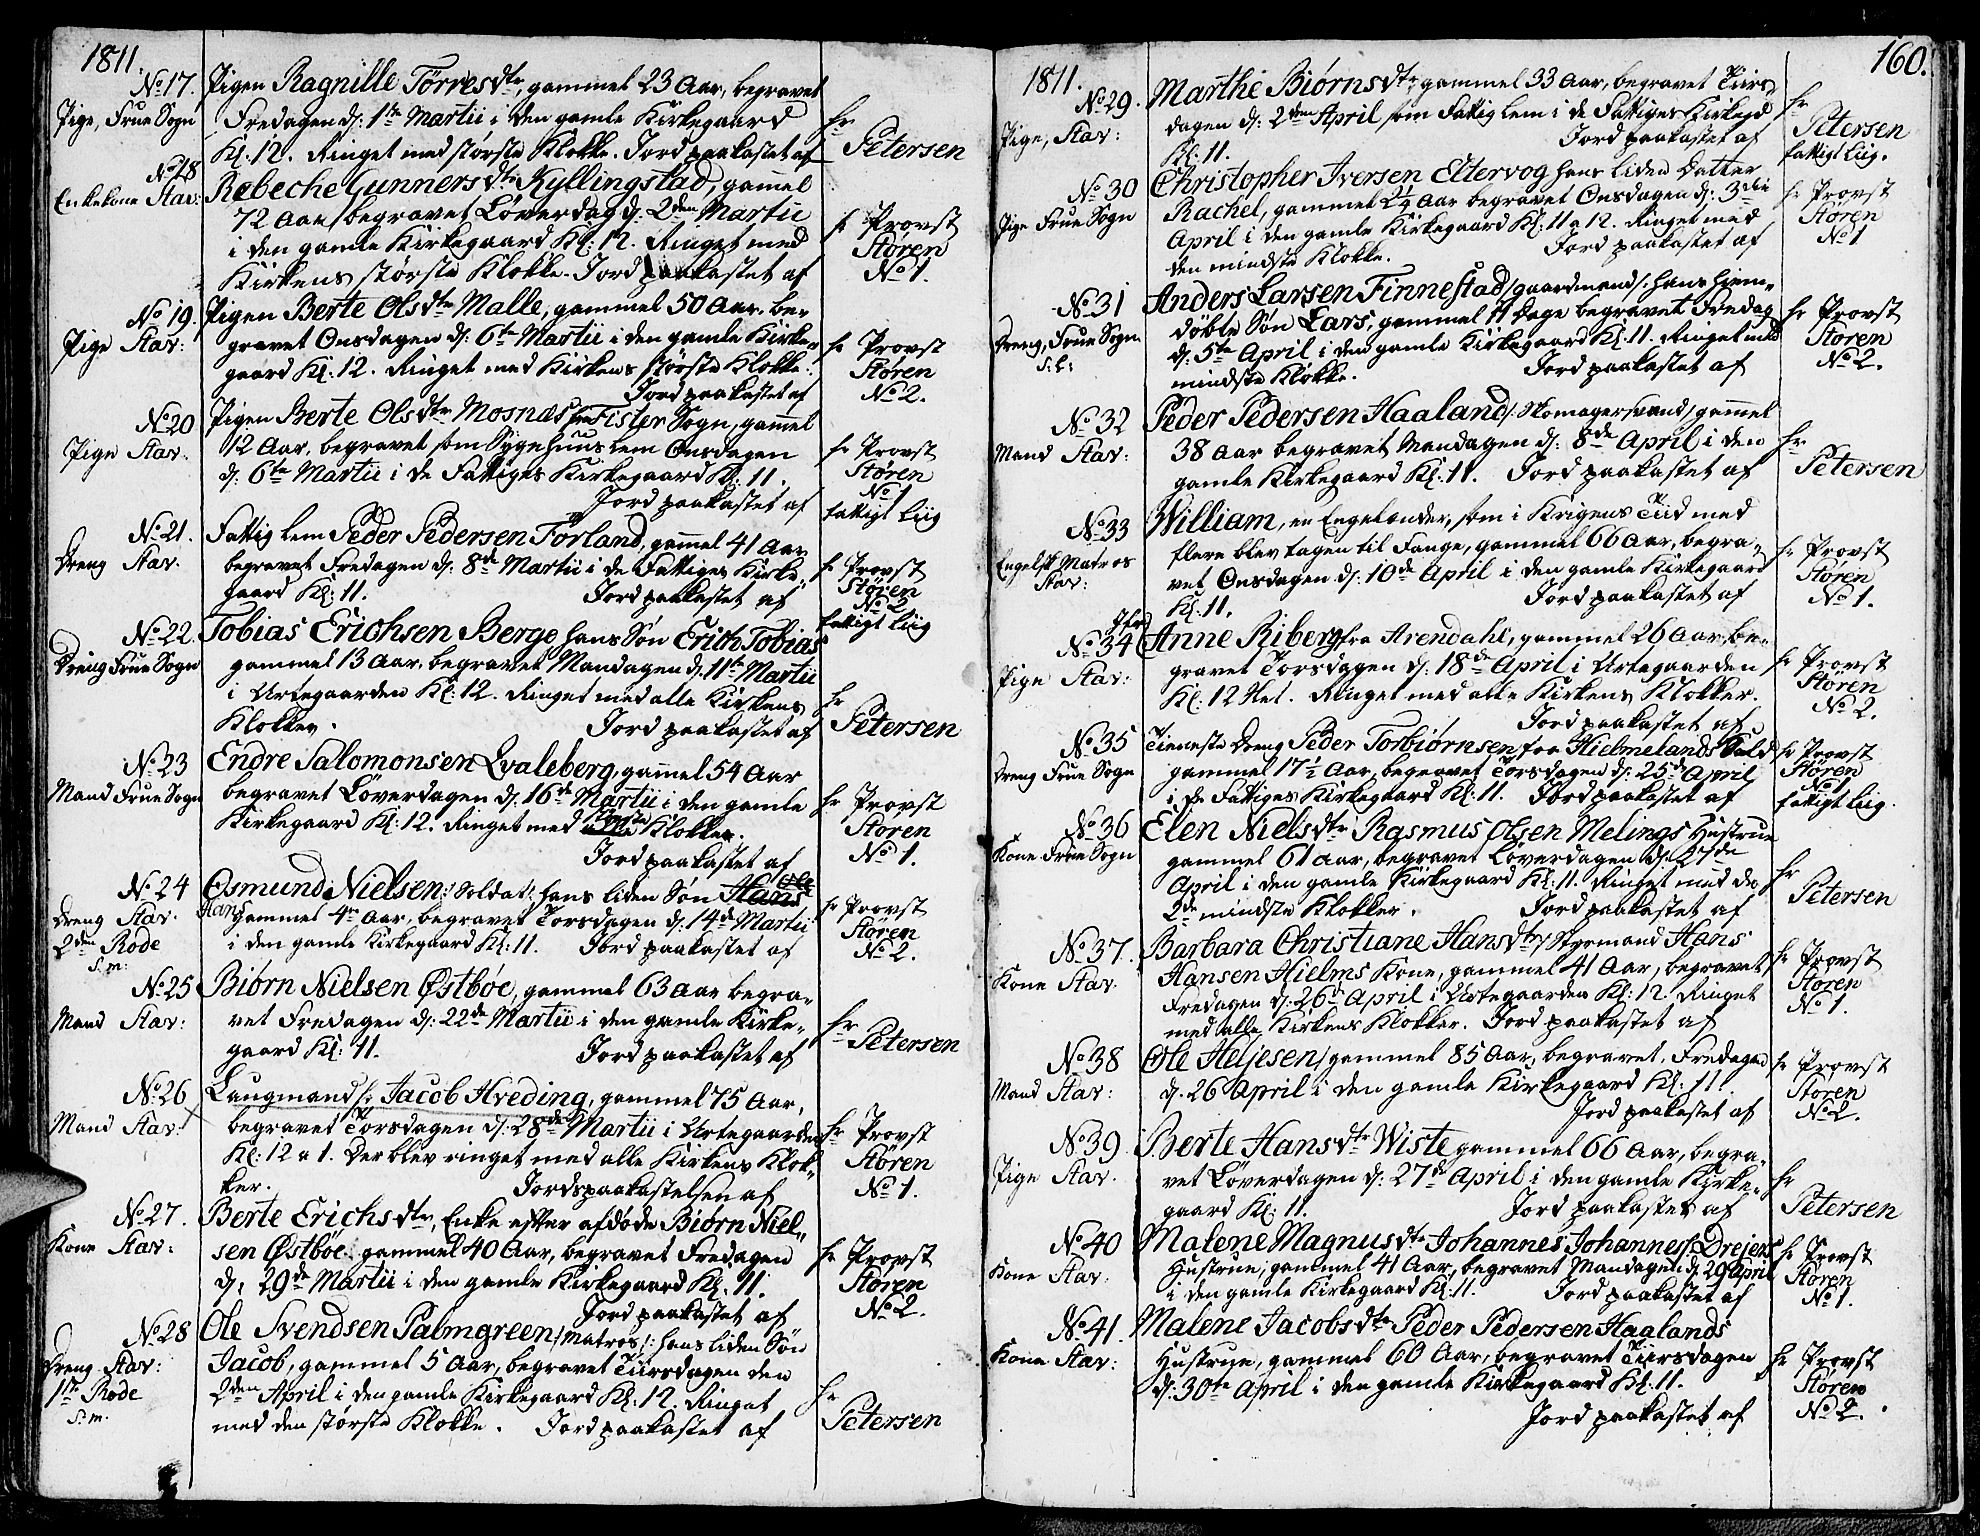 1811.
No 17.
Pige, Frue Sogn
Pigen Ragnille Tørresdtr, gammel 23 Aar, begravet
Fredagen d: 1te Martii i den gamle Kirkegaard
Kl: 12. Ringet med største Klokke. Jord paakastet af
hr
Petersen
No 18
Enkekone Stav:
Rebeche Gunnersdtr Kyllingstad, gamel
72 Aar, begravet Løverdag d: 2den Martii
i den gamle Kirkegaard Kl: 12. Ringet med
Kirkens største Klokke. Jord paakastet af
hr Provst
Støren
No 1.
No 19.
Pige Stav:
Pigen Berte Olsdtr Malle, gammel 50 Aar, be-
gravet Onsdagen d: 6te Martii i den gamle Kirke-
gaard Kl: 12. Ringet med Kirkens største Klokke.
Jord paakastet af
hr Provst
Støren
No 2.
No 20
Pige Stav.
Pigen Berte Olsdtr Mosnæs fra Fister Sogn, gamel
12 Aar, begravet som Sygehuus lem Onsdagen
d: 6te Martii i de Fattiges Kirkegaard Kl: 11.
Jord paakastet af
hr Provst
Støren
No 1
fattigt Liig
No 21.
Dreng Stav.
Fattig lem Peder Pedersen Forland, gamel 41 Aar
begravet Fredagen d: 8de Martii i de Fattiges Kirke-
gaard Kl: 11. Jord paakastet af
hr Provst
Støren
No 2
fattigt Liig
No 22.
Dreng Frue Sogn
Tobias Erichsen Berge hans Søn Erich Tobias
gammel 13 Aar, begravet Mandagen d: 11te Martii
i Urtegaarden Kl: 12. Ringet med alle Kirkens
Klokker. Jord paakastet af
hr
Petersen
No 23
Mand Frue Sogn
Endre Salomonsen Qvaleberg, gamel 54 Aar
begravet Løverdagen d: 16de Martii i den gamle
Kirkegaard Kl: 12. Ringet med største Klokke.
Jord paakastet af
hr Provst
Støren
No 1.
No 24
Dreng Stav.
2den Rode
S. m:
Osmund Nielsen /: Soldat :/ hans liden Søn Hans Ole
Hans gammel 4re Aar, begravet Torsdagen d: 14de Martii
i den gamle Kirkegaard Kl: 11. Jord paakastet af
hr Provst
Støren
No 2.
No 25
Mand Stav:
Biørn Nielsen Østbøe, gammel 63 Aar begra-
vet Fredagen d: 22de Martii i den gamle Kirke-
gaard Kl: 11. Jord paakastet af
hr
Petersen
No 26
Mand Stav:
Laugmand hr Jacob Hveding, gammel 75 Aar,
begravet Torsdagen d: 28de Martii i Urtegaarden
Kl: 12 a 1. Der blev ringet med alle Kirkens Klok-
ker. Jordspaakastelsen af
hr Provst
Støren
No 1.
No 27.
Kone Stav:
Berte Erichsdtr, Enke efter afdøde Biørn Niel-
sen Østbøe, gammel 40 Aar, begravet Fredagen
d: 29de Martii i den gamle Kirkegaard Kl. 11.
Jord paakastet af
hr Provst
Støren
No 2.
No 28
Dreng Stav:
1te Rode
S. m.
Ole Svendsen Palmgreen /Matros/: hans liden Søn
Jacob, gammel 5 Aar, begravet Tiirsdagen den
2den April i den gamle Kirkegaard Kl: 12. Ringet
med den største Klokke. Jord paakastet af
hr
Petersen
160.
1811.
No 29.
Pige, Stav:
Marthe Biørnsdtr, gammel 33 Aar, begravet Tiirs-
dagen d: 2den April som Fattig lem i de Fattiges Kirkegd
Kl: 11. Jord paakastet af
hr
Petersen
fattigt Liig.
No 30
Pige Frue Sogn
Christopher Iversen Eltervog hans liden Datter
Rachel, gammel 2¼ Aar begravet Onsdagen d: 3die
April i den gamle Kirkegaard Kl: 11 a 12. Ringet med
den mindste Klokke. Jord paakastet af
hr Provst
Støren
No 1
No 31
Dreng, Frue Sogn
Anders Larsen Finnestad /gaardmand/: hans hiem-
døbte Søn Lars, gammel 11 Dage begravet Fredag
d: 5te April i den gamle Kirkegaard Kl: 11. Ringet med
mindste Klokke. Jord paakastet af
hr Provst
Støren
No 2.
No 32
Mand Stav:
Peder Pedersen Haaland /: Skomagersvend/ gamel
38 Aar begravet Mandagen d: 8de April i den
gamle Kirkegaard Kl: 11. Jord paakastet af
hr
Petersen
No 33
Engelsk Matros
Stav:
William, en Engelænder, som i Krigens Tiid med
flere blev tagen til Fange, gammel 66 Aar, begra-
vet Onsdagen d: 10de April i den gamle Kirkegaard
Kl: 11. Jord paakastet af
hr Provst
Støren
No 1.
No 34
Pige Stav:
Jfr
Anne Riberg fra Arendahl, gammel 26 Aar, be-
gravet Torsdagen d: 18de April i Urtegaarden
Kl: 12 Slet. Ringet med alle Kirkens Klokker.
Jord paakastet af
hr Provst
Støren
No 2.
No 35
Dreng Frue Sogn
Tieneste Dreng Peder Torbiørnsen fra Hielmelands Guld
gammel 17½ Aar, begravet Torsdagen d: 25de April
i de Fattiges Kirkegaard Kl: 11. Jord paakastet af
hr Provst
Støren
No 1
fattigt Liig.
No 36
Kone Frue Sogn
Elen Nielsdtr Rasmus Olsen Melings Hustrue
gammel 61 Aar, begravet Løverdagen d: 27de
April i den gamle Kirkegaard Kl: 11. Ringet med de
2de mindste Klokker. Jord paakastet af
hr
Petersen
No 37.
Kone Stav.
Barbara Christiane Hansdtr / Styrmand Hans
Hansen Hielms Kone, gammel 41 Aar, begravet
Fredagen d: 26de April i Urtegaarden Kl: 12. Ringet
med alle Kirkens Klokker. Jord paakastet af
hr Provst
Støren
No 1.
No 38
Mand Stav:
Ole Heljesen, gammel 85 Aar, begravet Fredagen
d. 26 April i den gamle Kirkegaard Kl: 11.
Jord paakastet af
hr Provst
Støren
No 2.
No 39
Pige Stav.
Berte Hansdtr Wiste gammel 66 Aar, begra-
vet Løverdagen d: 27de April i den gamle Kirke-
gaard Kl: 11. Jord paakastet af
hr
Petersen
No 40
Kone Stav:
Malene Magnusdtr Johannes Johannes: Drejers
Hustrue, gammel 41 Aar, begravet Mandagen d 29 April
i den gamle Kirkegaard Kl: 11. Jord paakastet af
hr Provst
Støren
No 1.
No 41.
Kone Stav:
Malene Jacobsdtr Peder Pedersen Haalands
Hustrue, gammel 60 Aar, begravet Tiirsdagen
d: 30te April i den gamle Kirkegaard Kl: 11.
Jord paakastet af
hr Provst
Støren
No 2.